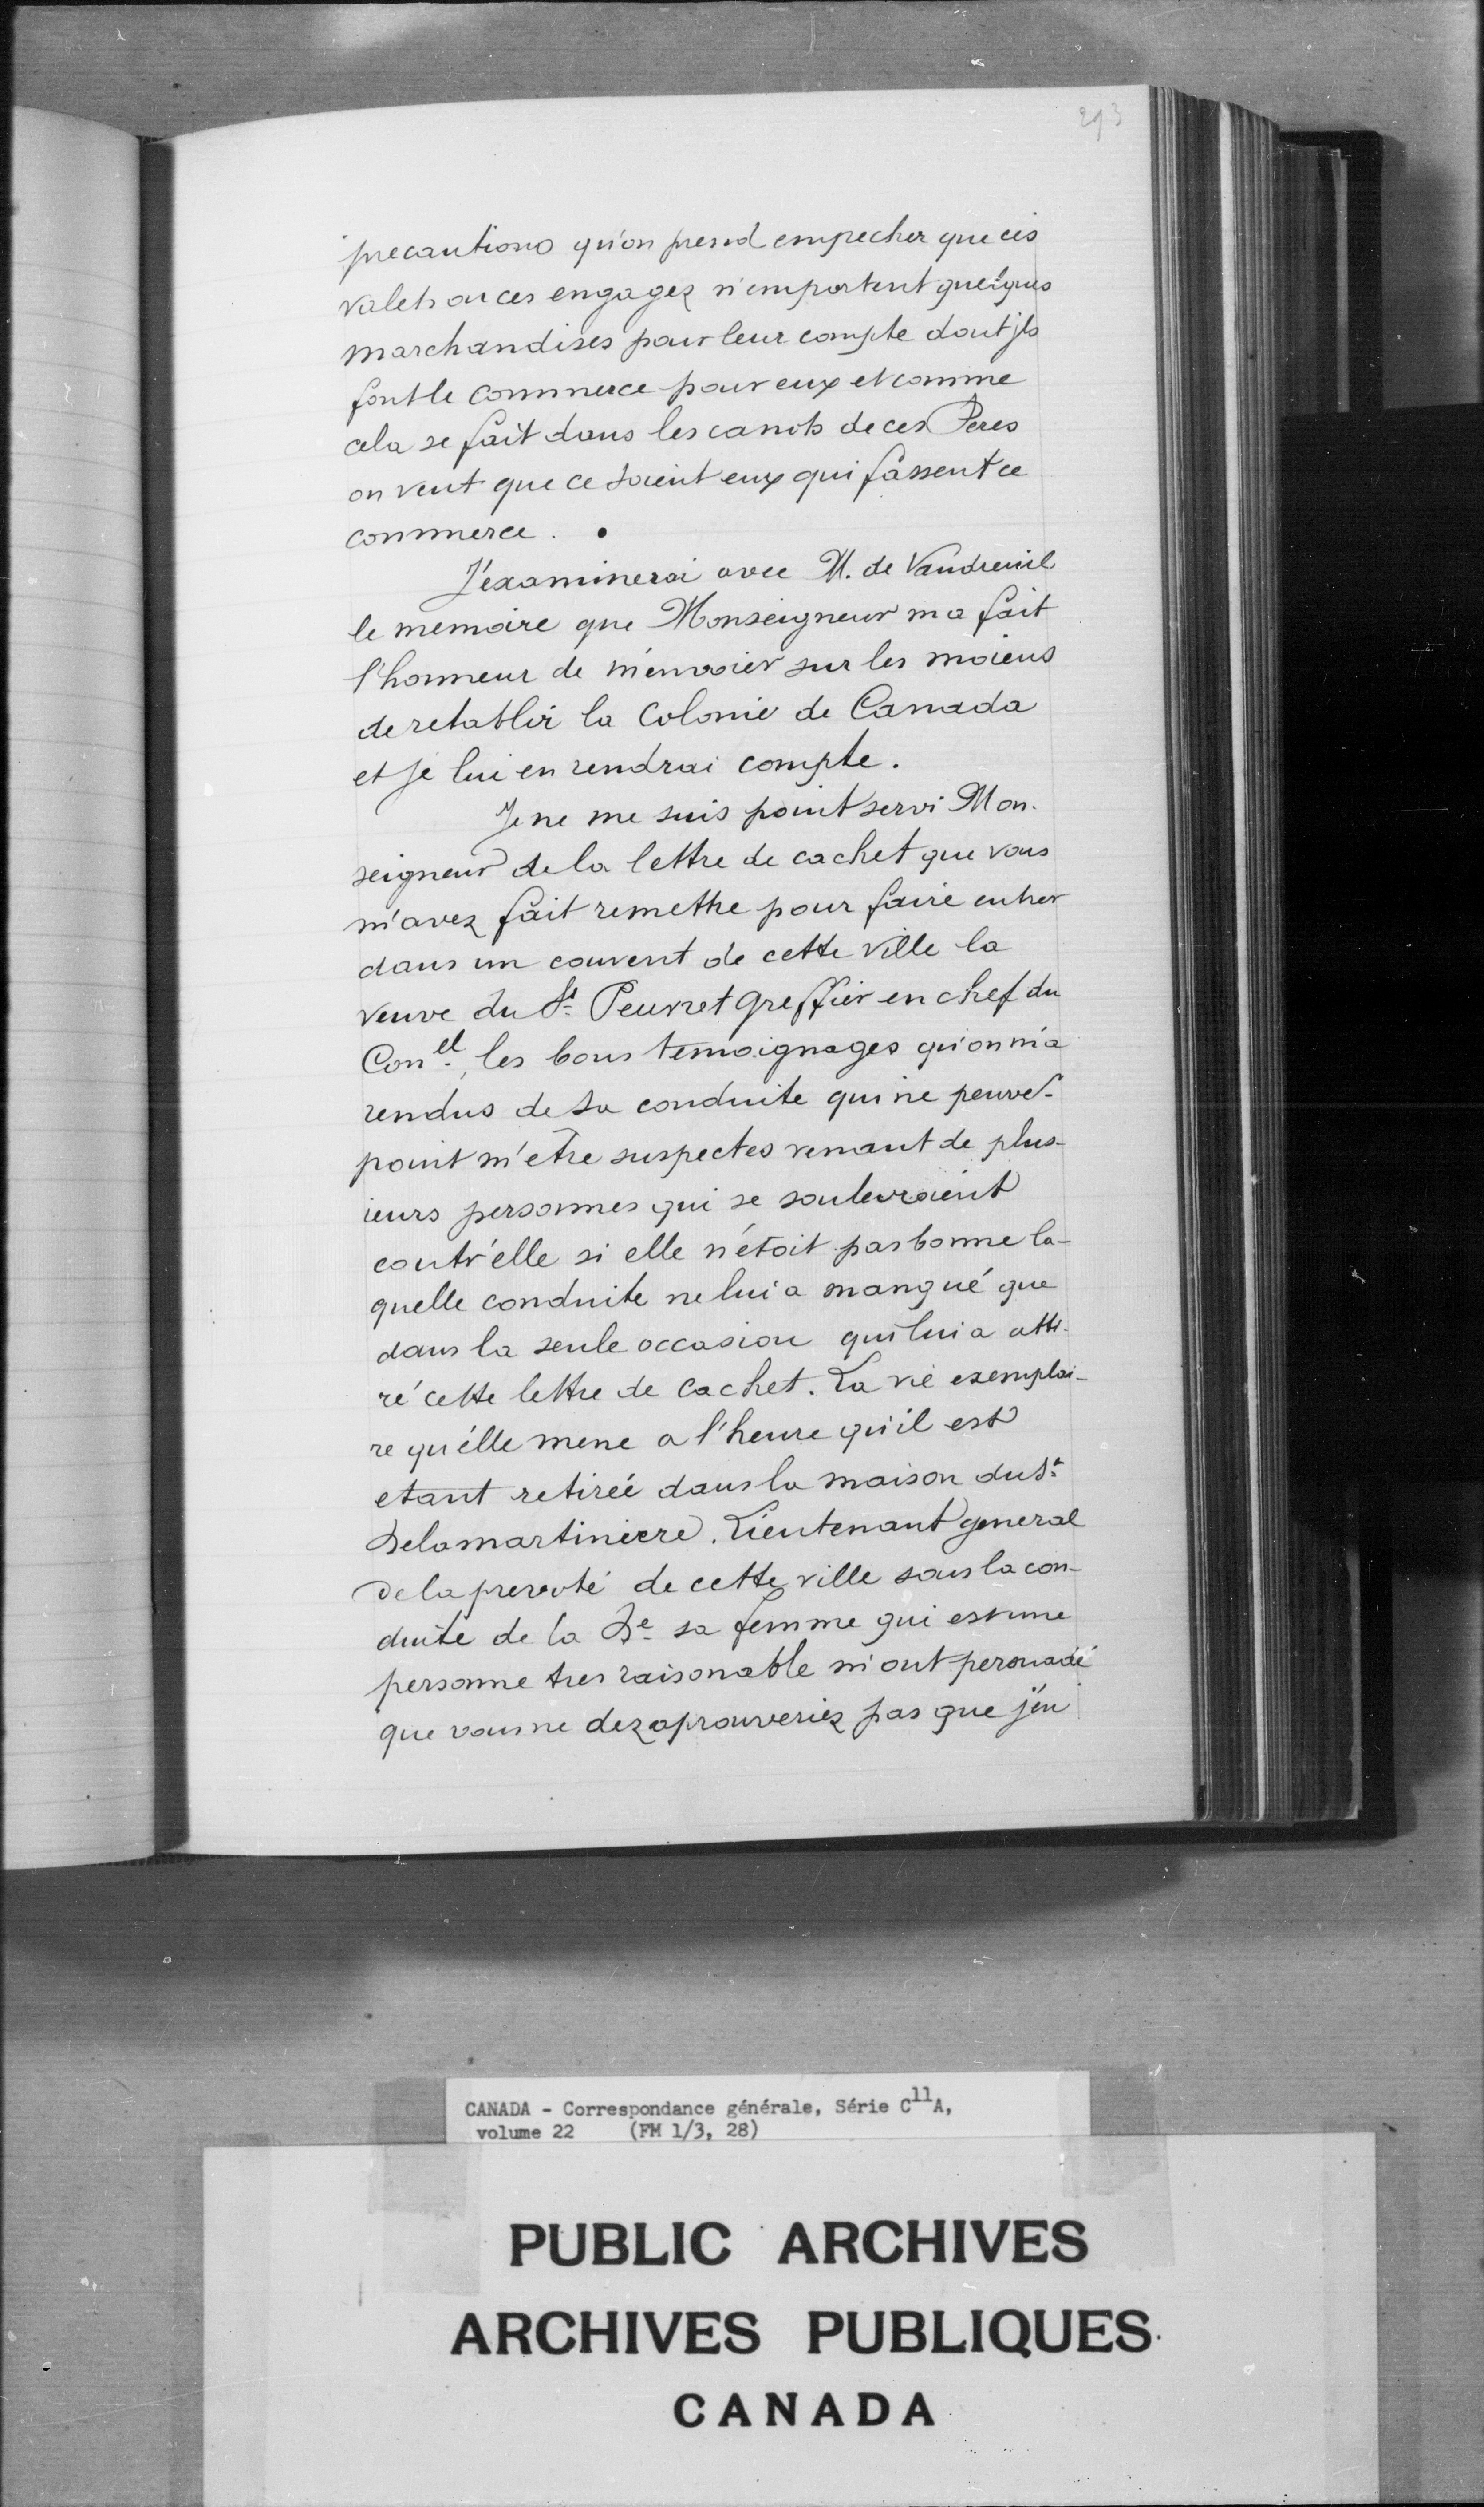 293
precautions qu'on prend empecher que ces
valets ou ces engagez n'emportent quelques
marchandises pour leur compte dont jls
font le commerce pour eux et comme
cela se fait dans les canots de ces Peres
on veut que ce soient eux qui fassent ce
commerce.
J'examinerai avec M. de Vaudreuil
le memoire que Monseigneur m'a fait
l'honneur de m'envoier sur les moiens
de retablir la Colonie de Canada
et je lui en rendrai compte.
Je ne me suis point servi Mon-
seigneur de la lettre de cachet que vous
m'avez fait remettre pour faire entrer
dans un couvent de cette ville la
veuve du Sr. Peuvret greffier en chef du
Conel, les bons temoignages qu'on m'a
rendus de sa conduite qui ne peuvet
point m'etre suspectes venant de plus-
ieurs personnes qui se soulevroient
contr'elle si elle n'étoit pas bonne la-
quelle conduite ne lui a manqué que
dans la seule occasion qui lui a atti-
ré cette lettre de cachet. La vie exemplai-
re qu'elle mene a l'heure qu'il est
etant retirée dans la maison du Sr.
Delamartiniere. Lieutenant general
de la prevoté de cette ville sous la con-
duite de la De. sa femme qui est une
personne tres raisonable m'ont persuadé
que vous ne dezaprouveriez pas que j'en
CANADA - Correspondance générale, Série C11A,
volume 22 (FM 1/3, 28)
PUBLIC ARCHIVES
ARCHIVES PUBLIQUES
CANADA